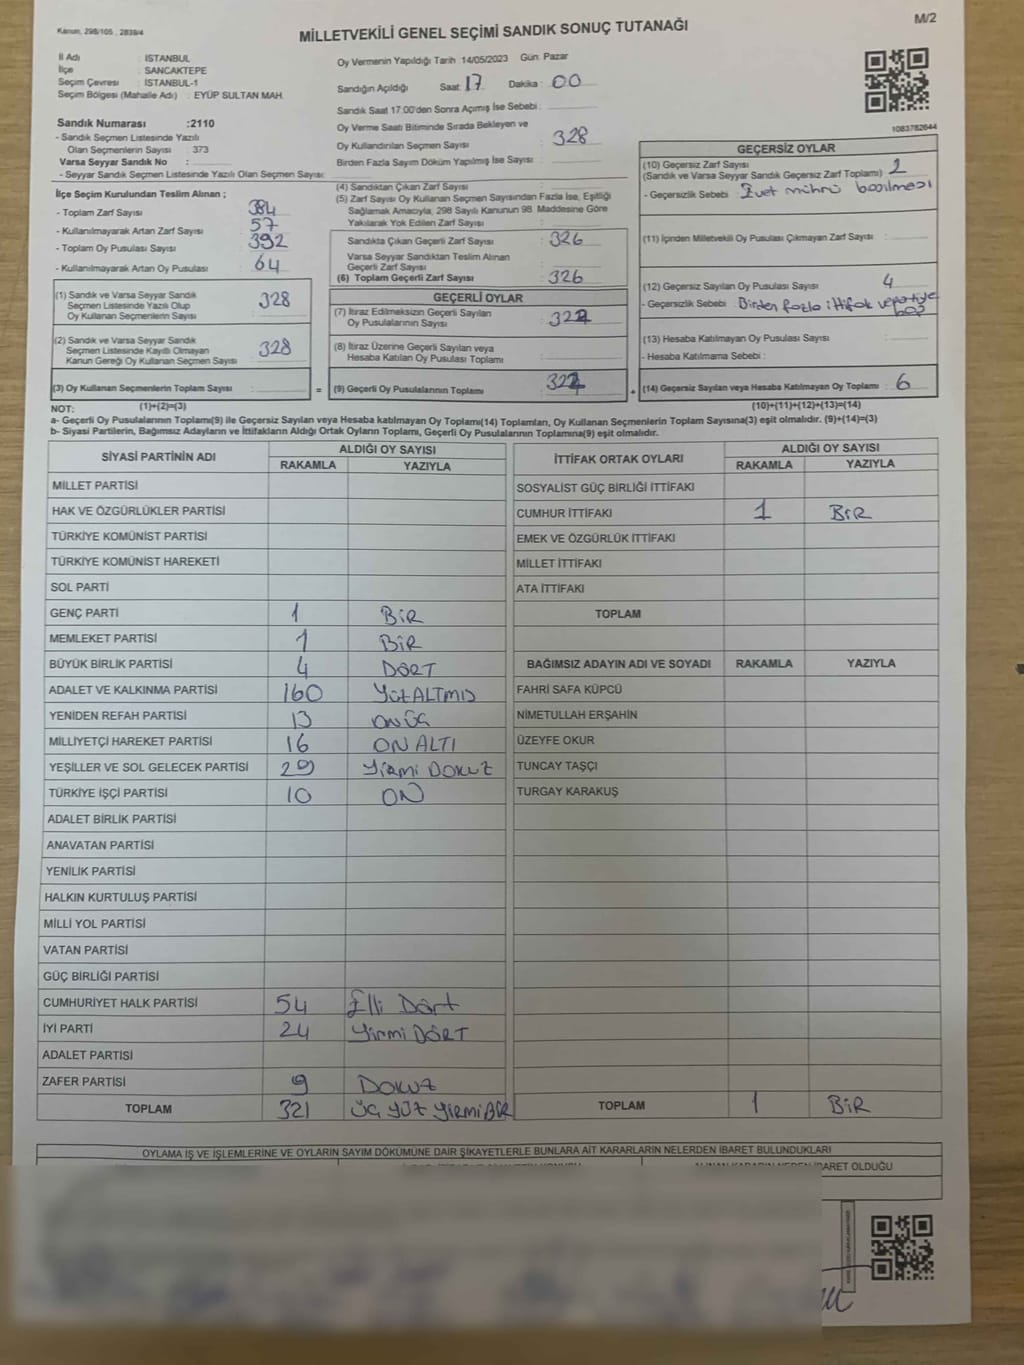 Kanun, 298/105 , 2839/4
MİLLETVEKİLİ GENEL SEÇİMİ SANDIK SONUÇ TUTANAĞI
M/2
İl Adı : İSTANBUL
İlçe : SANCAKTEPE
Seçim Çevresi : İSTANBUL-1
Seçim Bölgesi (Mahalle Adı) : EYÜP SULTAN MAH.
Sandık Numarası :2110
- Sandık Seçmen Listesinde Yazılı
Olan Seçmenlerin Sayısı : 373
Varsa Seyyar Sandık No :
- Seyyar Sandık Seçmen Listesinde Yazılı Olan Seçmen Sayısı:
Oy Vermenin Yapıldığı Tarih :14/05/2023 Gün: Pazar
Sandığın Açıldığı Saat: 17 Dakika : 00
Sandık Saat 17:00'den Sonra Açımış İse Sebebi :
Oy Verme Saati Bitiminde Sırada Bekleyen ve
Oy Kullandırılan Seçmen Sayısı : 328
Birden Fazla Sayım Döküm Yapılmış İse Sayısı :
1083782644
İlçe Seçim Kurulundan Teslim Alınan ;
- Toplam Zarf Sayısı : 384
- Kullanılmayarak Artan Zarf Sayısı : 57
- Toplam Oy Pusulası Sayısı : 392
- Kullanılmayarak Artan Oy Pusulası : 64
(1) Sandık ve Varsa Seyyar Sandık
Seçmen Listesinde Yazılı Olup
Oy Kullanan Seçmenlerin Sayısı : 328
(2) Sandık ve Varsa Seyyar Sandık
Seçmen Listesinde Kayıtlı Olmayan
Kanun Gereği Oy Kullanan Seçmen Sayısı : 328
(3) Oy Kullanan Seçmenlerin Toplam Sayısı :
(1)+(2)=(3)
(4) Sandıktan Çıkan Zarf Sayısı :
(5) Zarf Sayısı Oy Kullanan Seçmen Sayısından Fazla İse, Eşitliği
Sağlamak Amacıyla, 298 Sayılı Kanunun 98. Maddesine Göre
Yakılarak Yok Edilen Zarf Sayısı :
Sandıkta Çıkan Geçerli Zarf Sayısı : 326
Varsa Seyyar Sandıktan Teslim Alınan
Geçerli Zarf Sayısı :
(6) Toplam Geçerli Zarf Sayısı : 326
GEÇERLİ OYLAR
(7) İtiraz Edilmeksizin Geçerli Sayılan
Oy Pusulalarının Sayısı : 322
(8) İtiraz Üzerine Geçerli Sayılan veya
Hesaba Katılan Oy Pusulası Toplamı :
= (9) Geçerli Oy Pusulalarının Toplamı : 322
GEÇERSİZ OYLAR
(10) Geçersiz Zarf Sayısı
(Sandık ve Varsa Seyyar Sandık Geçersiz Zarf Toplamı) : 2
- Geçersizlik Sebebi : Evet mührü basılması
(11) İçinden Milletvekili Oy Pusulası Çıkmayan Zarf Sayısı :
(12) Geçersiz Sayılan Oy Pusulası Sayısı : 4
- Geçersizlik Sebebi : Birden fazla ittifak ve partiye
(13) Hesaba Katılmayan Oy Pusulası Sayısı :
- Hesaba Katılmama Sebebi :
+ (14) Geçersiz Sayılan veya Hesaba Katılmayan Oy Toplamı : 6
(10)+(11)+(12)+(13)=(14)
NOT:
a- Geçerli Oy Pusulalarının Toplamı(9) ile Geçersiz Sayılan veya Hesaba katılmayan Oy Toplamı(14) Toplamları, Oy Kullanan Seçmenlerin Toplam Sayısına(3) eşit olmalıdır. (9)+(14)=(3)
b- Siyasi Partilerin, Bağımsız Adayların ve İttifakların Aldığı Ortak Oyların Toplamı, Geçerli Oy Pusulalarının Toplamına(9) eşit olmalıdır.
SİYASİ PARTİNİN ADI ALDIĞI OY SAYISI
RAKAMLA YAZIYLA
MİLLET PARTİSİ
HAK VE ÖZGÜRLÜKLER PARTİSİ
TÜRKİYE KOMÜNİST PARTİSİ
TÜRKİYE KOMÜNİST HAREKETİ
SOL PARTİ
GENÇ PARTİ 1 BİR
MEMLEKET PARTİSİ 1 BİR
BÜYÜK BİRLİK PARTİSİ 4 DÖRT
ADALET VE KALKINMA PARTİSİ 160 YÜZALTMIŞ
YENİDEN REFAH PARTİSİ 13 ONÜÇ
MİLLİYETÇİ HAREKET PARTİSİ 16 ON ALTI
YEŞİLLER VE SOL GELECEK PARTİSİ 29 YİRMİ DOKUZ
TÜRKİYE İŞÇİ PARTİSİ 10 ON
ADALET BİRLİK PARTİSİ
ANAVATAN PARTİSİ
YENİLİK PARTİSİ
HALKIN KURTULUŞ PARTİSİ
MİLLİ YOL PARTİSİ
VATAN PARTİSİ
GÜÇ BİRLİĞİ PARTİSİ
CUMHURİYET HALK PARTİSİ 54 Elli Dört
İYİ PARTİ 24 YİRMİ DÖRT
ADALET PARTİSİ
ZAFER PARTİSİ 9 DOKUZ
TOPLAM 321 ÜÇ YÜZ YİRMİ BİR
İTTİFAK ORTAK OYLARI ALDIĞI OY SAYISI
RAKAMLA YAZIYLA
SOSYALİST GÜÇ BİRLİĞİ İTTİFAKI
CUMHUR İTTİFAKI 1 BİR
EMEK VE ÖZGÜRLÜK İTTİFAKI
MİLLET İTTİFAKI
ATA İTTİFAKI
TOPLAM
BAĞIMSIZ ADAYIN ADI VE SOYADI RAKAMLA YAZIYLA
FAHRİ SAFA KÜPCÜ
NİMETULLAH ERŞAHİN
ÜZEYFE OKUR
TUNCAY TAŞÇI
TURGAY KARAKUŞ
TOPLAM 1 BİR
OYLAMA İŞ VE İŞLEMLERİNE VE OYLARIN SAYIM DÖKÜMÜNE DAİR ŞİKAYETLERLE BUNLARA AİT KARARLARIN NELERDEN İBARET BULUNDUKLARI
İBARET OLDUĞU